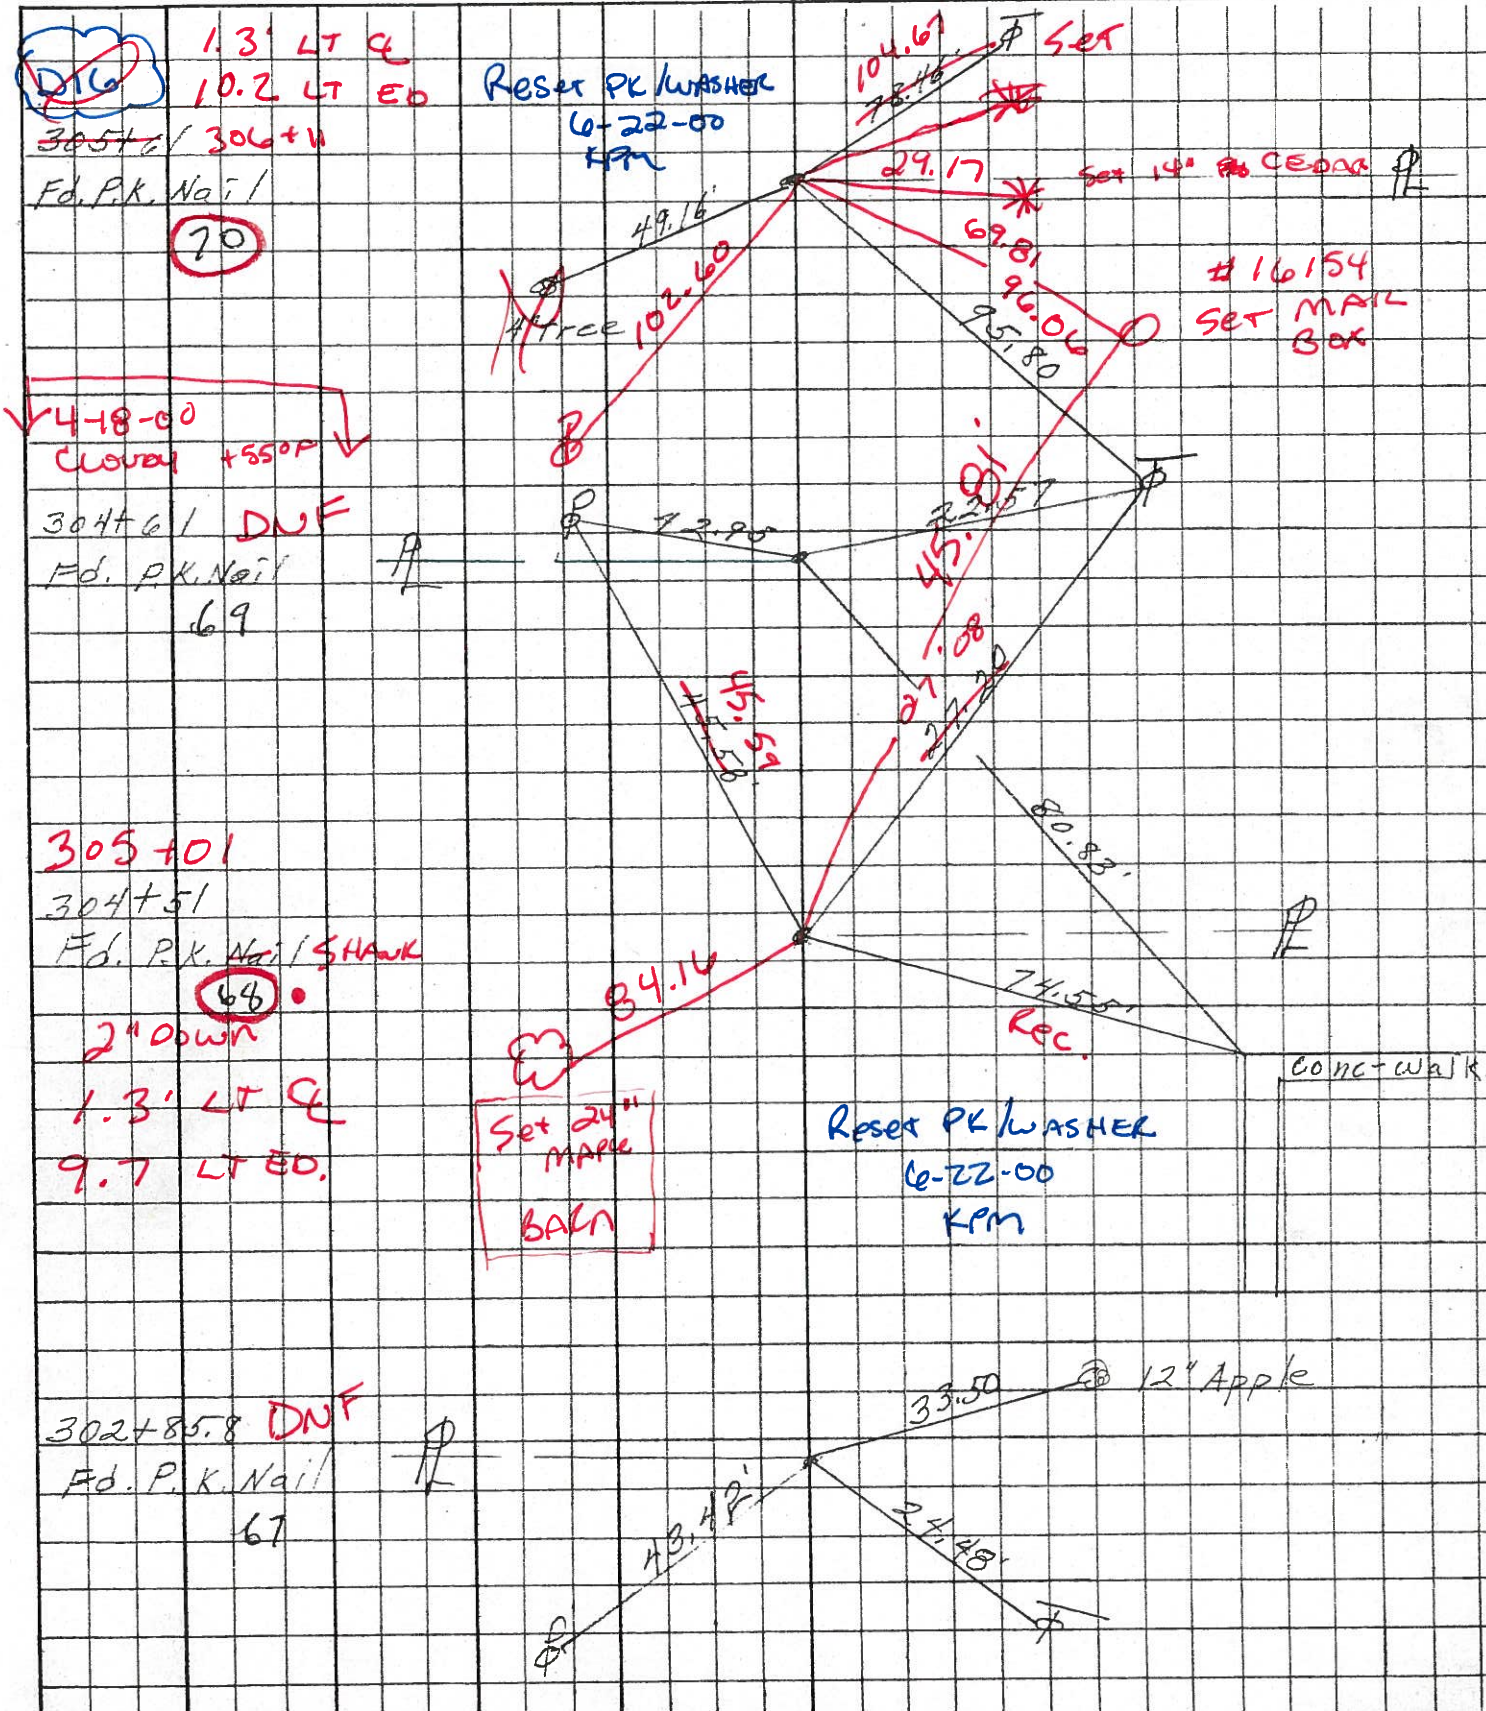 DIG
1.3' LT CL
10.2 LT ED
305+61 306+11
Fd. P.K. Nail
70
Reset PK/WASHER
6-22-00
KPM
104.67
78.46'
T SET
29.17
Set 14" CEDAR
PL
49.16'
102.60
4" Tree
69.81
96.06
95.80
#16154
SET MAIL
BOX
P
4-18-00
CLOUDY +55°F
304+61 DNF
Fd. P.K. Nail
69
PL
P
22.57
T
45.81'
27.08
27.20
45.58'
45.59
80.83'
305+01
304+51
Fd. P.K. Nail SHANK
68
2" DOWN
1.3' LT CL
9.7 LT ED.
PL
84.16
74.55'
Rec.
conc-walk
Set 24"
MAPLE
BARN
Reset PK/WASHER
6-22-00
KPM
302+85.8 DNF
Fd. P.K. Nail
67
PL
33.50
12" Apple
43.42'
24.48'
P
T